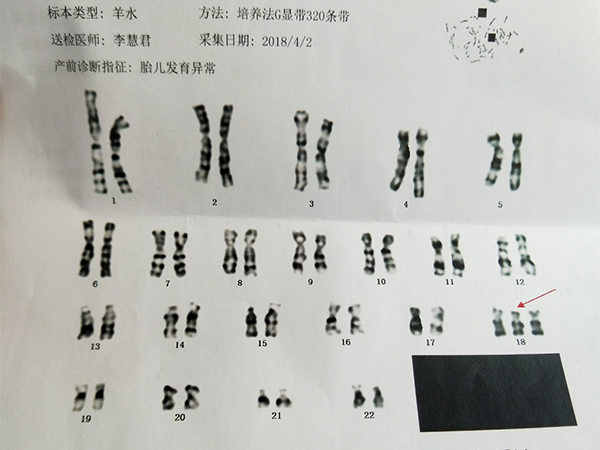 标本类型：羊水 方法：培养法G显带320条带
送检医师：李慧君 采集日期：2018/4/2
产前诊断指征：胎儿发育异常
1 2 3 4 5
6 7 8 9 10 11 12
13 14 15 16 17 18
19 20 21 22